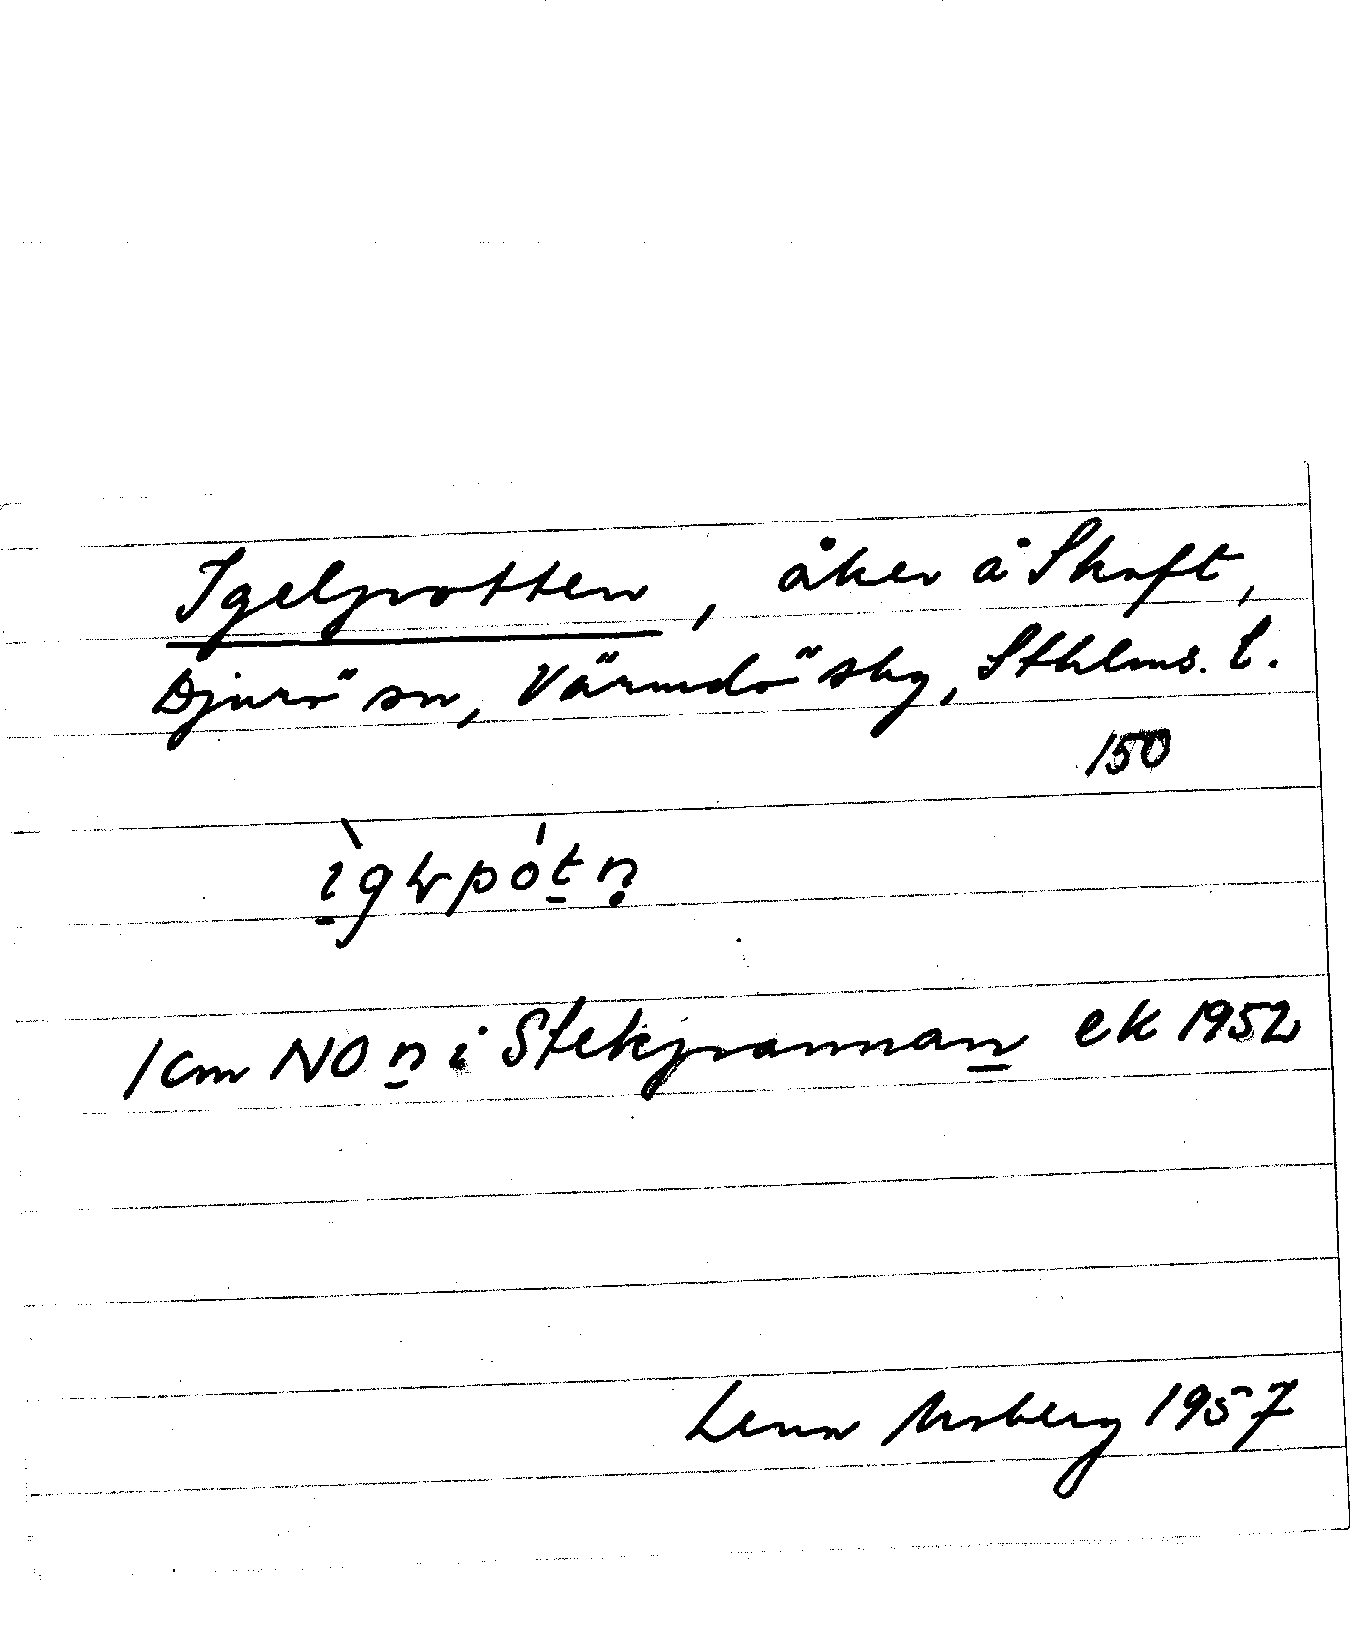 Igelpotten, åker å Skaft,
Djurö sn, Värmdö skg, Sthlms. l.
150
ìgɬpótṇ
1 cm NO n i Stekpannan ek 1952
Lena Moberg 1957